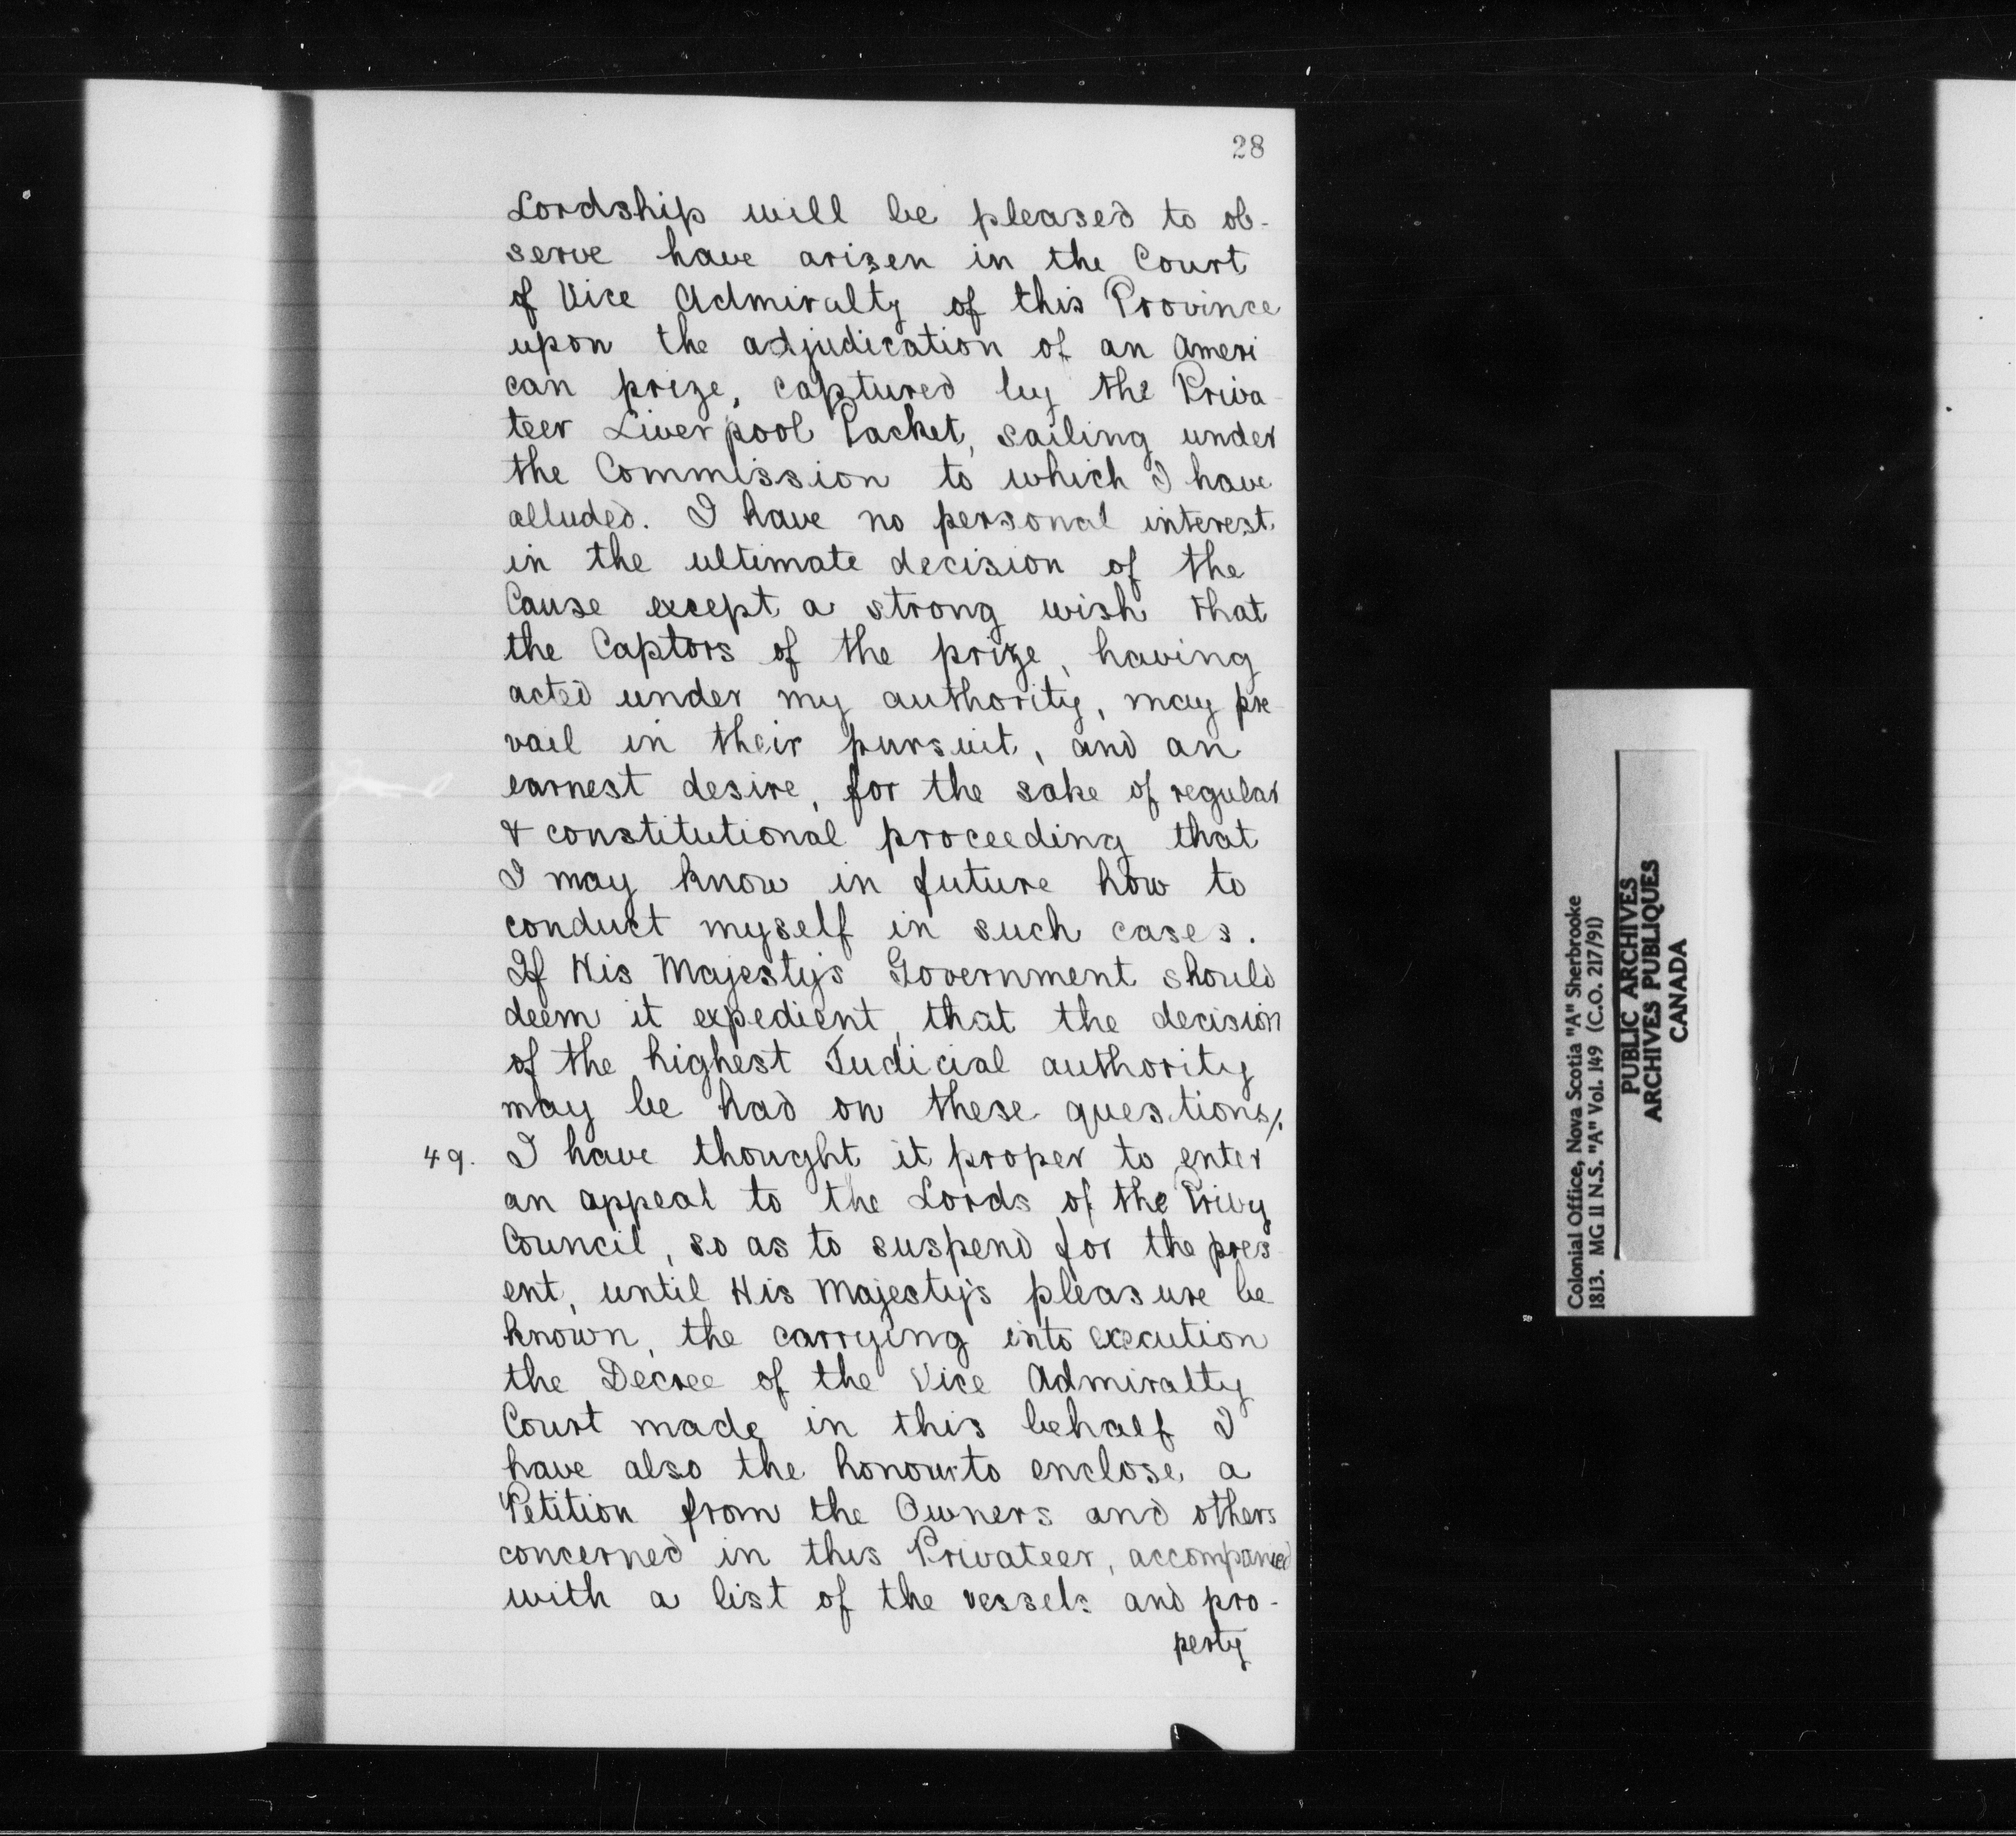 28
Lordship will be pleased to ob-
serve have arisen in the Court
of Vice Admiralty of this Province
upon the adjudication of an Ameri
can prize, captured by the Priva-
teer Liverpool Packet, sailing under
the Commission to which I have
alluded. I have no personal interest
in the ultimate decision of the
Cause except a strong wish that
the Captors of the prize, having
acted under my authority, may pre
vail in their pursuit, and an
earnest desire, for the sake of regular
& constitutional proceeding that
I may know in future how to
conduct myself in such cases.
If His Majesty's Government should
deem it expedient, that the decision
of the highest Judicial authority
may be had on these questions/.
49. I have thought it proper to enter
an appeal to the Lords of the Privy
Council, so as to suspend for the pres
ent, until His Majesty's pleasure be
known, the carrying into execution
the Decree of the Vice Admiralty
Court made in this behalf I
have also the honour to enclose a
Petition from the Owners and others
concerned in this Privateer, accompanied
with a list of the vessels and pro-
perty
Colonial Office, Nova Scotia "A" Sherbrooke
1813. MG 11 N.S. "A" Vol. 149 (C.O. 217/91)
PUBLIC ARCHIVES
ARCHIVES PUBLIQUES
CANADA